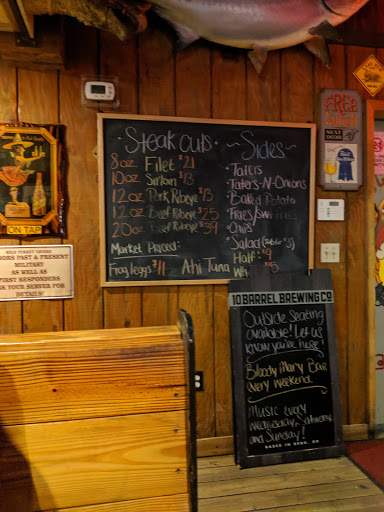 Steak cuts
8oz Filet $21
10oz Sirloin $13
12oz Pork Ribeye $15
12oz Beef Ribeye $25
20oz Beef Ribeye $39
Market Priced:
Frog legs $11 Ahi Tuna
~Sides~
- Tots
- Taters-N-Onions
- Baked Potato
- Fries/
- Chips
- Salad
Half: $9
ON TAP
HONORS PAST & PRESENT
MILITARY
AS WELL AS
FIRST RESPONDERS
ASK YOUR SERVER FOR
DETAILS!
FREE
NEXT DOOR
10 BARREL BREWING CO
Outside Seating
available! Let us
know you're here!
Bloody Mary Bar
every weekend.
Music every
Wednesday, Saturday
and Sunday!
BASED IN BEND, OR